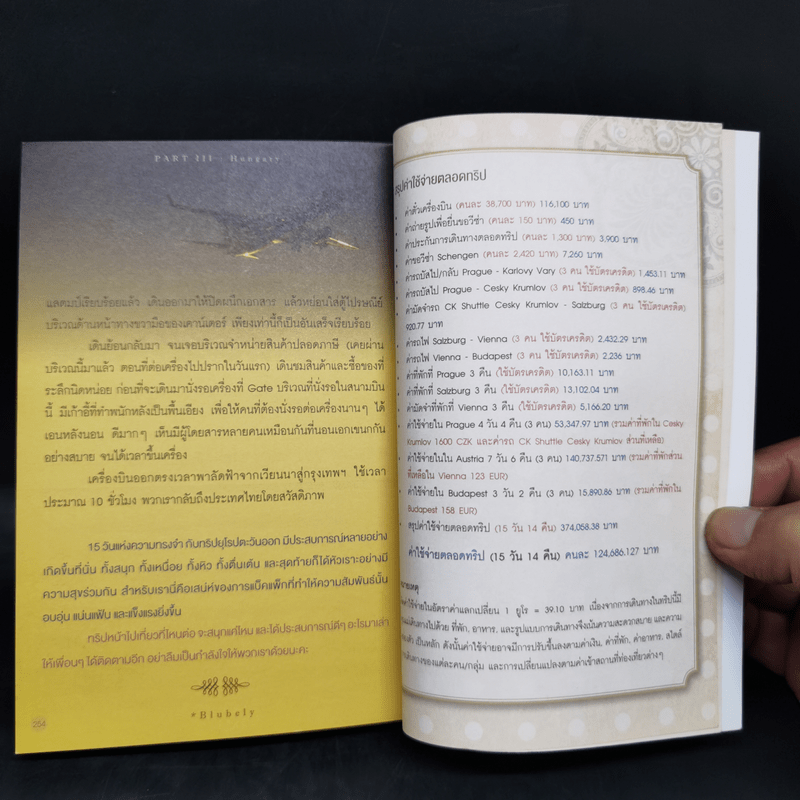 PART III Hungary
แสตมป์เรียบร้อยแล้ว เดินออกมาให้ปิดผนึกเอกสาร แล้วหย่อนใส่ตู้ไปรษณีย์
บริเวณด้านหน้าทางขวามือของเคาน์เตอร์ เพียงเท่านี้ก็เป็นอันเสร็จเรียบร้อย
เดินย้อนกลับมา จนเจอบริเวณจำหน่ายสินค้าปลอดภาษี (เคยผ่าน
บริเวณนี้มาแล้ว ตอนที่ต่อเครื่องไปปรากในวันแรก) เดินชมสินค้าและซื้อของที่
ระลึกนิดหน่อย ก่อนที่จะเดินมานั่งรอเครื่องที่ Gate บริเวณที่นั่งรอในสนามบิน
นี้ มีเก้าอี้ที่ทำพนักหลังเป็นพื้นเอียง เพื่อให้คนที่ต้องนั่งรอต่อเครื่องนานๆ ได้
เอนหลังนอน ดีมากๆ เห็นมีผู้โดยสารหลายคนเหมือนกันที่นอนเอกเขนกกัน
อย่างสบาย จนได้เวลาขึ้นเครื่อง
เครื่องบินออกตรงเวลาพาลัดฟ้าจากเวียนนาสู่กรุงเทพฯ ใช้เวลา
ประมาณ 10 ชั่วโมง พวกเรากลับถึงประเทศไทยโดยสวัสดิภาพ
15 วันแห่งความทรงจำ กับทริปยุโรปตะวันออก มีประสบการณ์หลายอย่าง
เกิดขึ้นที่นั่น ทั้งสนุก ทั้งเหนื่อย ทั้งหิว ทั้งตื่นเต้น และสุดท้ายก็ได้หัวเราะอย่างมี
ความสุขร่วมกัน สำหรับเรานี่คือเสน่ห์ของการแบ็คแพ็กที่ทำให้ความสัมพันธ์นั้น
อบอุ่น แน่นแฟ้น และแข็งแรงยิ่งขึ้น
ทริปหน้าไปเที่ยวที่ไหนต่อ จะสนุกแค่ไหน และได้ประสบการณ์ดีๆ อะไรมาเล่า
ให้เพื่อนๆ ได้ติดตามอีก อย่าลืมเป็นกำลังใจให้พวกเราด้วยนะคะ
#Blubely
254
สรุปค่าใช้จ่ายตลอดทริป
• ค่าตั๋วเครื่องบิน (คนละ 38,700 บาท) 116,100 บาท
• ค่าถ่ายรูปเพื่อยื่นขอวีซ่า (คนละ 150 บาท) 450 บาท
• ค่าประกันการเดินทางตลอดทริป (คนละ 1,300 บาท) 3,900 บาท
• ค่าขอวีซ่า Schengen (คนละ 2,420 บาท) 7,260 บาท
• ค่ารถบัสไป/กลับ Prague - Karlovy Vary (3 คน ใช้บัตรเครดิต) 1,453.11 บาท
• ค่ารถบัสไป Prague - Cesky Krumlov (3 คน ใช้บัตรเครดิต) 898.46 บาท
• ค่ามัดจำรถ CK Shuttle Cesky Krumlov - Salzburg (3 คน ใช้บัตรเครดิต)
920.77 บาท
• ค่ารถไฟ Salzburg - Vienna (3 คน ใช้บัตรเครดิต) 2,432.29 บาท
• ค่ารถไฟ Vienna - Budapest (3 คน ใช้บัตรเครดิต) 2,236 บาท
• ค่าที่พักที่ Prague 3 คืน (ใช้บัตรเครดิต) 10,163.11 บาท
• ค่าที่พักที่ Salzburg 3 คืน (ใช้บัตรเครดิต) 13,102.04 บาท
• ค่ามัดจำที่พักที่ Vienna 3 คืน (ใช้บัตรเครดิต) 5,166.20 บาท
• ค่าใช้จ่ายใน Prague 4 วัน 4 คืน (3 คน) 53,347.97 บาท (รวมค่าที่พักใน Cesky
Krumlov 1600 CZK และค่ารถ CK Shuttle Cesky Krumlov ส่วนที่เหลือ)
• ค่าใช้จ่ายในใน Austria 7 วัน 6 คืน (3 คน) 140,737.571 บาท (รวมค่าที่พักส่วน
ที่เหลือใน Vienna 123 EUR)
• ค่าใช้จ่ายใน Budapest 3 วัน 2 คืน (3 คน) 15,890.86 บาท (รวมค่าที่พักใน
Budapest 158 EUR)
• สรุปค่าใช้จ่ายตลอดทริป (15 วัน 14 คืน) 374,058.38 บาท
• ค่าใช้จ่ายตลอดทริป (15 วัน 14 คืน) คนละ 124,686.127 บาท
ค่าใช้จ่ายในอัตราค่าแลกเปลี่ยน 1 ยูโร = 39.10 บาท เนื่องจากการเดินทางในทริปนี้มี
เดินทางไปด้วย ที่พัก, อาหาร, และรูปแบบการเดินทางจึงเน้นความสะดวกสบาย และความ
เป็นหลัก ดังนั้นค่าใช้จ่ายอาจมีการปรับขึ้นลงตามค่าเงิน, ค่าที่พัก, ค่าอาหาร, สไตล์
เดินทางของแต่ละคน/กลุ่ม และการเปลี่ยนแปลงตามค่าเข้าสถานที่ท่องเที่ยวต่างๆ